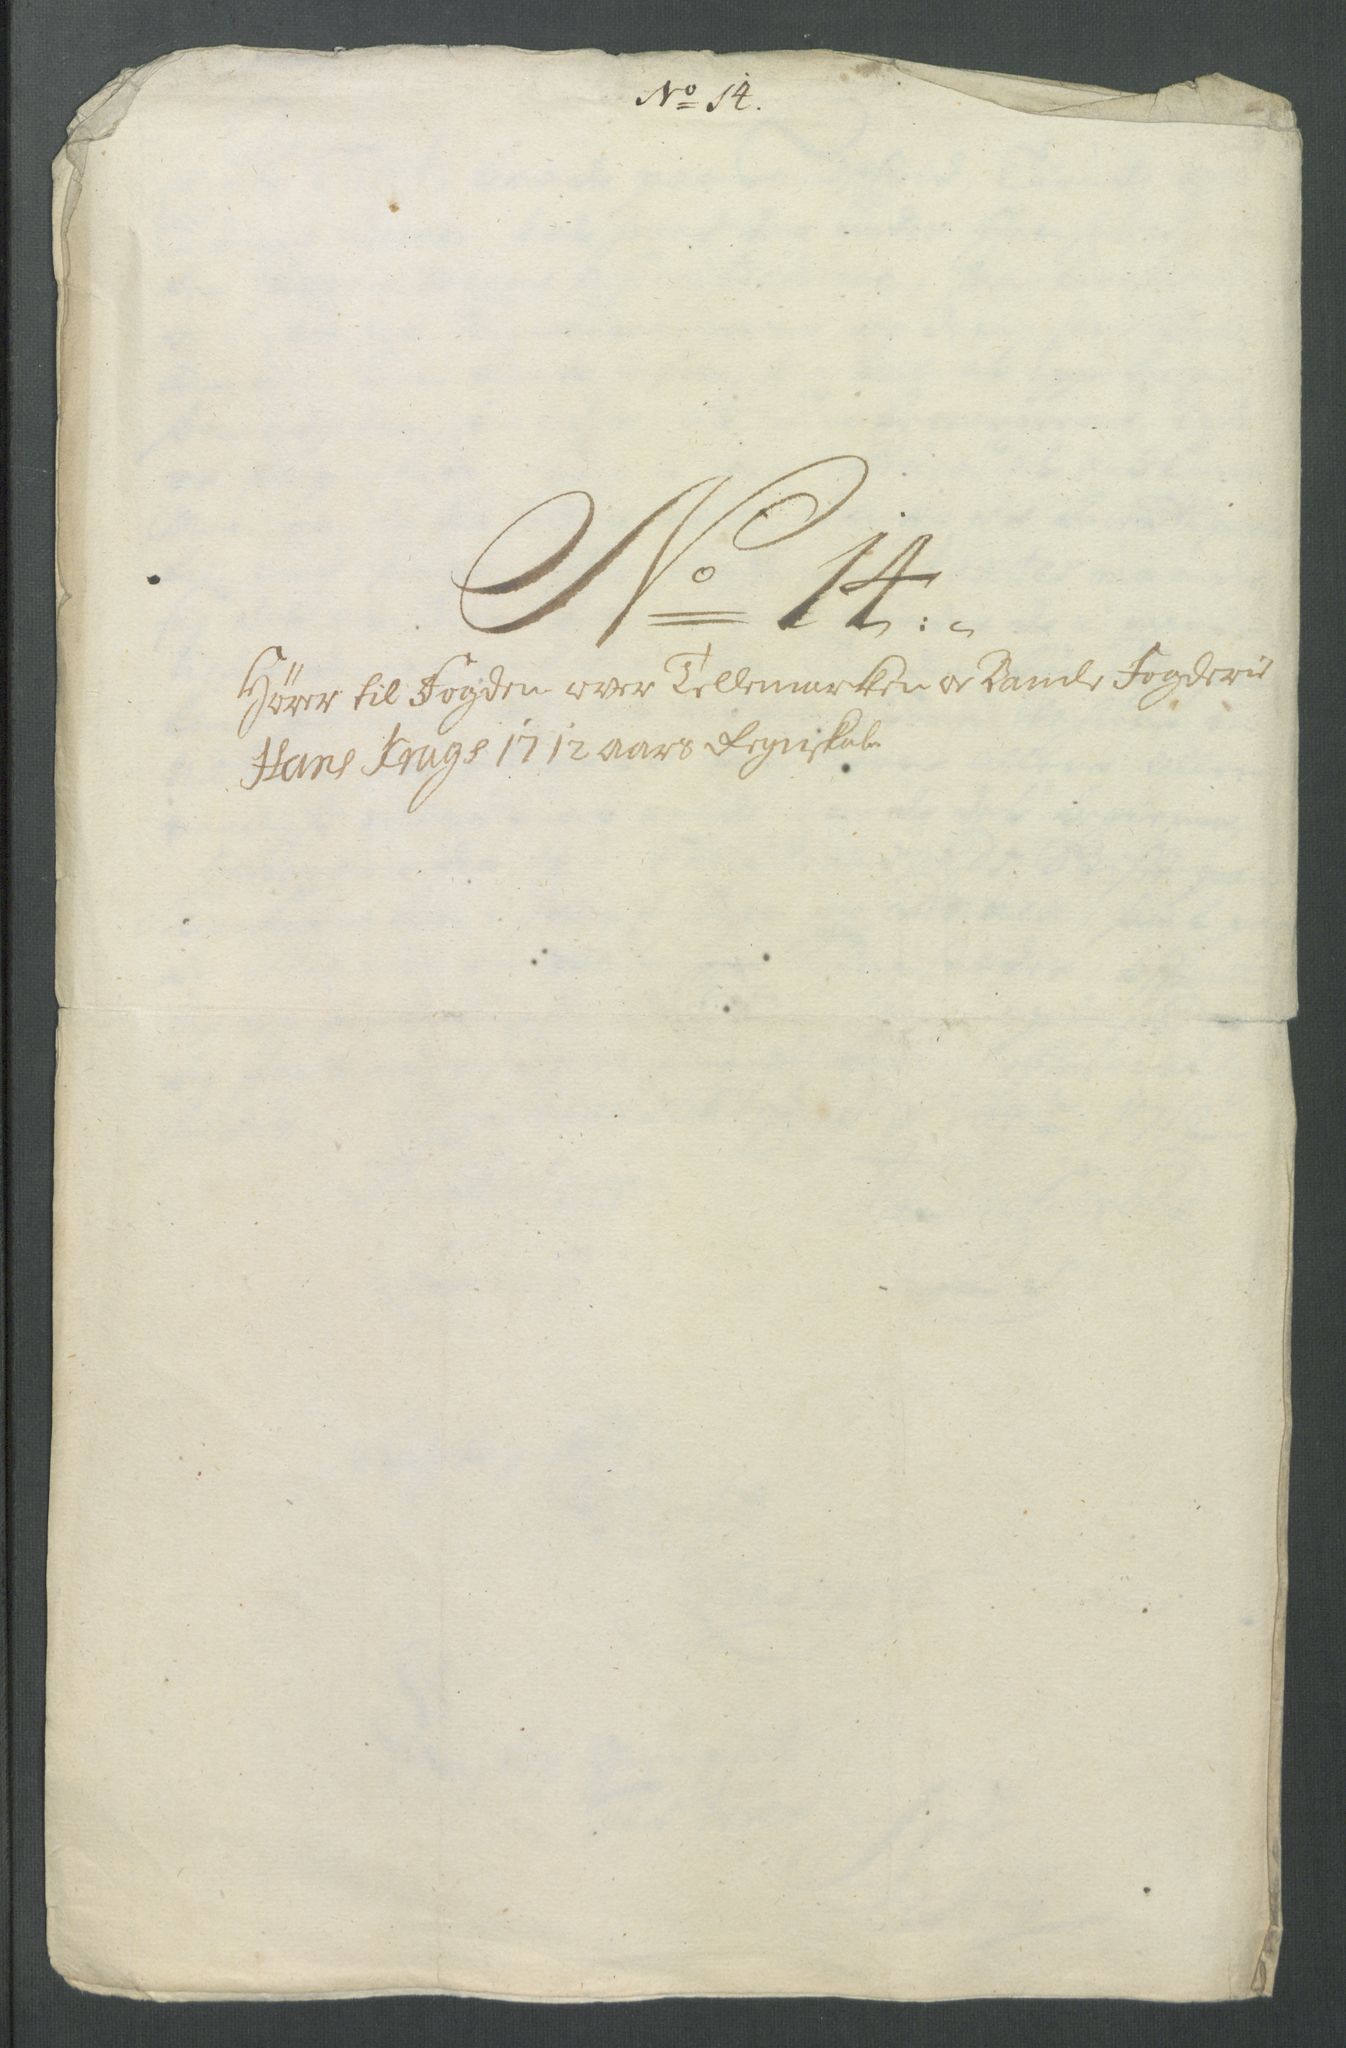 No 14.
No 14:
Hører til Fogden over Tellemarken oc Bamle Fogderie
Hans Krags 1712 aars Regnskab